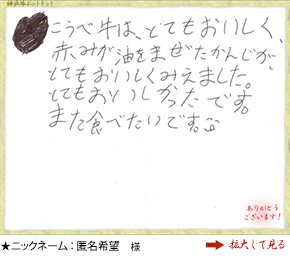 神戸牛ドットネット
こうべ牛は、とてもおいしく、
赤みが油をまぜたかんじが、
とてもおいしくみえました。
とてもおいしかったです。
また食べたいです。
ありがとう
ございます!
★ニックネーム：匿名希望　様
拡大して見る